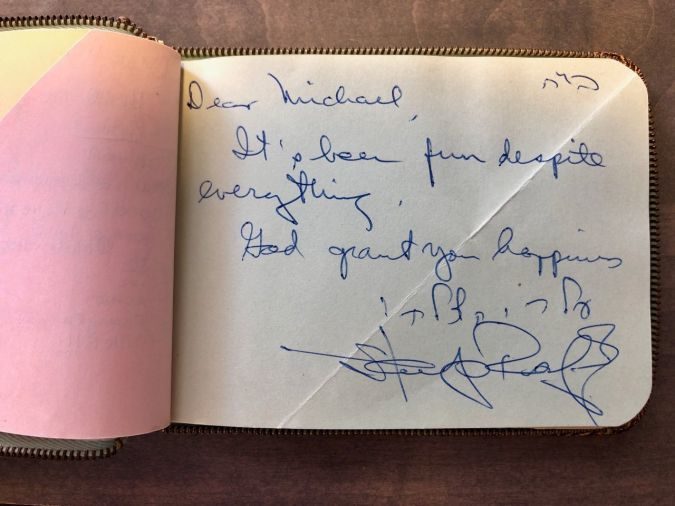 ב"ה
Dear Michael,
It's been fun despite
everything.
God grant you happiness